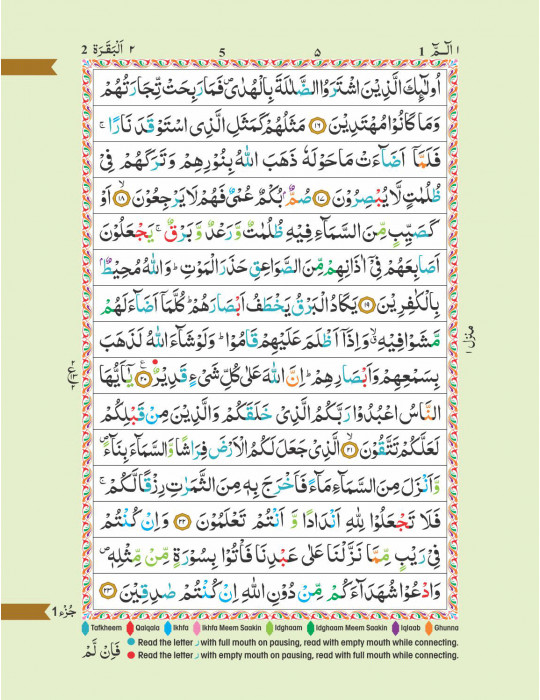 2 اَلْبَقَرَة ٢ 5 ۵ 1 الٓمّٓ ١
اُولٰٓئِكَ الَّذِيْنَ اشْتَرَوُا الضَّلٰلَةَ بِالْهُدٰى ۪ فَمَا رَبِحَتْ تِّجَارَتُهُمْ
وَمَا كَانُوْا مُهْتَدِيْنَ ۝١٦ مَثَلُهُمْ كَمَثَلِ الَّذِى اسْتَوْقَدَ نَارًا ۚ
فَلَمَّاۤ اَضَآءَتْ مَا حَوْلَهٗ ذَهَبَ اللّٰهُ بِنُوْرِهِمْ وَتَرَكَهُمْ فِىْ
ظُلُمٰتٍ لَّا يُبْصِرُوْنَ ۝١٧ صُمٌّۢ بُكْمٌ عُمْىٌ فَهُمْ لَا يَرْجِعُوْنَ ۝١٨ۙ اَوْ
كَصَيِّبٍ مِّنَ السَّمَآءِ فِيْهِ ظُلُمٰتٌ وَّرَعْدٌ وَّبَرْقٌ ۚ يَجْعَلُوْنَ
اَصَابِعَهُمْ فِىْۤ اٰذَانِهِمْ مِّنَ الصَّوَاعِقِ حَذَرَ الْمَوْتِ ؕ وَاللّٰهُ مُحِيْطٌۢ
بِالْكٰفِرِيْنَ ۝١٩ يَكَادُ الْبَرْقُ يَخْطَفُ اَبْصَارَهُمْ ؕ كُلَّمَاۤ اَضَآءَ لَهُمْ
مَّشَوْا فِيْهِ ۙ وَاِذَاۤ اَظْلَمَ عَلَيْهِمْ قَامُوْا ؕ وَلَوْ شَآءَ اللّٰهُ لَذَهَبَ
بِسَمْعِهِمْ وَاَبْصَارِهِمْ ؕ اِنَّ اللّٰهَ عَلٰى كُلِّ شَىْءٍ قَدِيْرٌ ۝٢٠ يٰۤاَيُّهَا
النَّاسُ اعْبُدُوْا رَبَّكُمُ الَّذِىْ خَلَقَكُمْ وَالَّذِيْنَ مِنْ قَبْلِكُمْ
لَعَلَّكُمْ تَتَّقُوْنَ ۝٢١ۙ الَّذِىْ جَعَلَ لَكُمُ الْاَرْضَ فِرَاشًا وَّالسَّمَآءَ بِنَآءً ۪
وَّاَنْزَلَ مِنَ السَّمَآءِ مَآءً فَاَخْرَجَ بِهٖ مِنَ الثَّمَرٰتِ رِزْقًا لَّكُمْ ۚ
فَلَا تَجْعَلُوْا لِلّٰهِ اَنْدَادًا وَّ اَنْتُمْ تَعْلَمُوْنَ ۝٢٢ وَاِنْ كُنْتُمْ
فِىْ رَيْبٍ مِّمَّا نَزَّلْنَا عَلٰى عَبْدِنَا فَاْتُوْا بِسُوْرَةٍ مِّنْ مِّثْلِهٖ ۪
وَادْعُوْا شُهَدَآءَكُمْ مِّنْ دُوْنِ اللّٰهِ اِنْ كُنْتُمْ صٰدِقِيْنَ ۝٢٣
منزل ١
جُزْء 1
Tafkheem Qalqala Ikhfa Ikhfa Meem Saakin Idghaam Idghaam Meem Saakin Iqlaab Ghunna
Read the letter ر with full mouth on pausing, read with empty mouth while connecting.
Read the letter ر with empty mouth on pausing, read with full mouth while connecting.
فَاِنْ لَّمْ